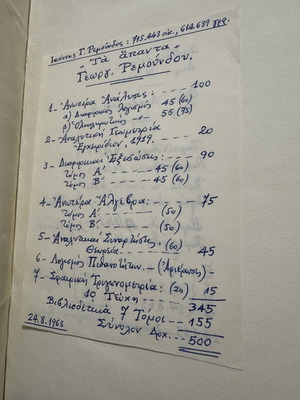 Ιωάννης Γ. Ρεμούνδος: 715.443 οίκ., 614.639 γρφ.
"Τὰ ἅπαντα"
Γεωργ. Ρεμούνδου.
1- Ἀνωτέρα Ἀνάλυσις: --- 100
α) Διαφορικὸς λογισμὸς 45 (60)
β) Ὁλοκληρωτικὸς -〃- 55 (75)
2- Ἀναλυτικὴ Γεωμετρία --- 20
Ἐγχειρίδιον, 1919.
3- Διαφορικαὶ Ἐξισώσεις: --- 90
Τόμος Α΄ ---- 45 (60)
Τόμος Β΄ ---- 45 (60)
4- Ἀνωτέρα Ἄλγεβρα: --- 75
Τόμος Α΄. --- (50)
Τόμος Β΄. --- (50)
5- Ἀναλυτικαὶ Συναρτήσεις,
Θεωρία --- (60) -- 45
6- Λογισμὸς Πιθανοτήτων -- (Ἀφιέρωσις) -
7- Σφαιρικὴ Τριγωνομετρία: (20) 15
10 Τεύχη --- 345
Βιβλιοδετικὰ 7 Τόμοι --- 155
Σύνολον Δρχ. -- 500
24.8.1965